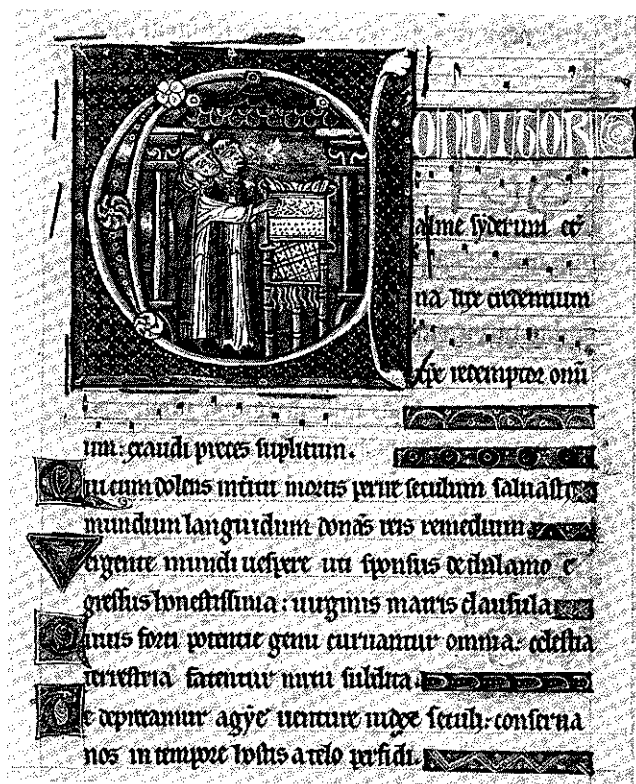 CONDITOR
alme syderum et̄
na lux credentium
xp̄e redemptor om̄
um: exaudi preces suplicum.
Qui cumdolens interitu mortis perire seculum saluasti
mundum languidum donās reis remedium
Vergente mundi uespere uti sponsus de thalamo e
gressus honestissima: uirginis matris clausula
Cuius forti potentie genu curuantur omnia: celestia
terrestria fatentur nutu subdita.
Te deprecamur agye uenture iudex seculi: conserua
nos in tempore hostis a telo perfidi.